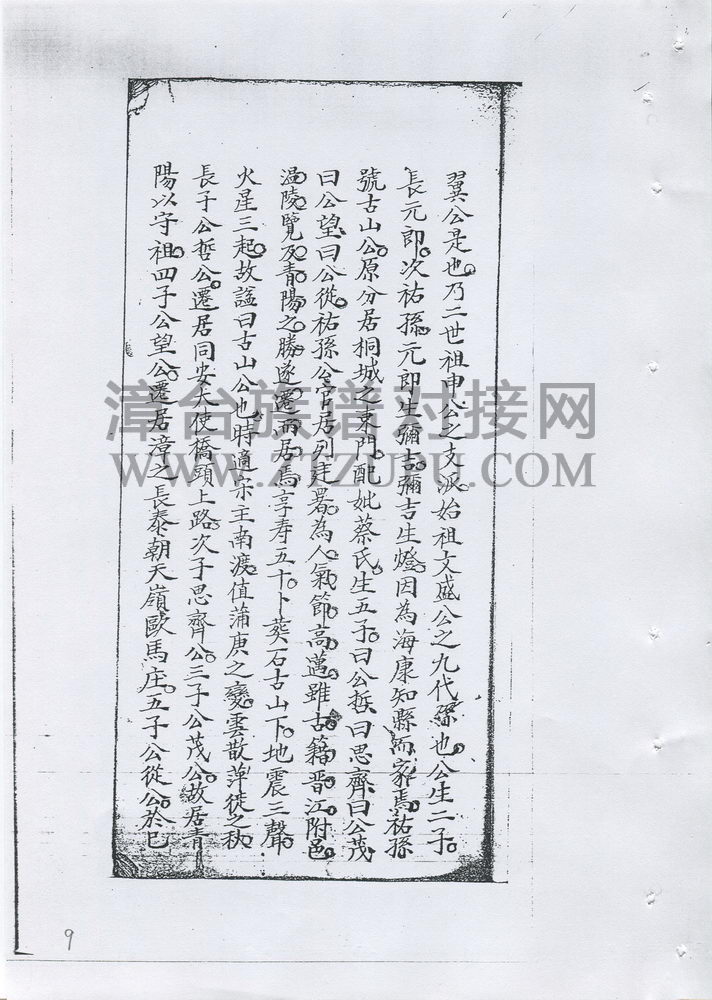 翼公是也乃二世祖申公之支派始祖文盛公之九代孫也。公生二子。
長元郎。次祐孫。元郎生彌吉。彌吉生燈。因為海康知縣而家焉。祐孫
號古山公。原分居桐城之東門。配妣蔡氏生五子。曰公哲曰思齊曰公茂
曰公望。曰公從。祐孫公官居列建署。為人氣節高邁。雖古籍晋江附邑。
温陵。覽及青陽之勝。遂遷而居焉。享寿五十。卜葬石古山下。地震三聲。
火星三起。故謚曰古山公也。時適宋主南渡。值蒲庚之變雲散萍徙之秋。
長子公哲公。遷居同安大使橋頭上路。次子思齊公。三子公茂公。故居青
陽以守祖。四子公望公。遷居漳之長泰朝天嶺歐馬庄。五子公從公。於巳
漳台族谱对接网
WWW.ZTZUPU.COM
9